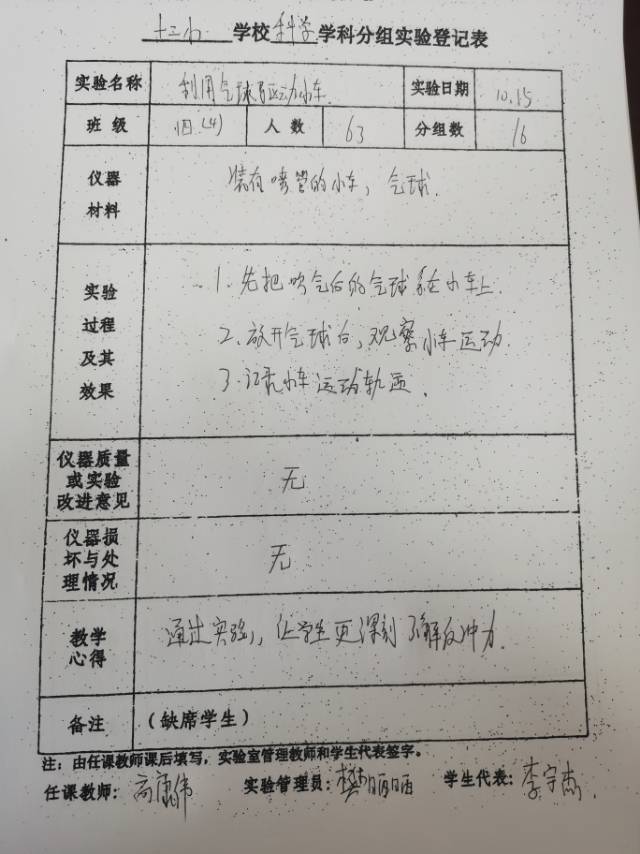 十二小学校科学学科分组实验登记表
实验名称 利用气球驱动小车 实验日期 10.15
班级 四(4) 人数 63 分组数 16
仪器材料 装有喷管的小车，气球.
实验过程及其效果
1.先把吹气后的气球系在小车上.
2、放开气球后，观察小车运动.
3.记录小车运动轨迹.
仪器质量或实验改进意见 无
仪器损坏与处理情况 无
教学心得 通过实验，让学生更深刻了解反冲力.
备注 （缺席学生）
注：由任课教师课后填写，实验室管理教师和学生代表签字。
任课教师：高 伟 实验管理员：樊丽丽 学生代表：李宇杰